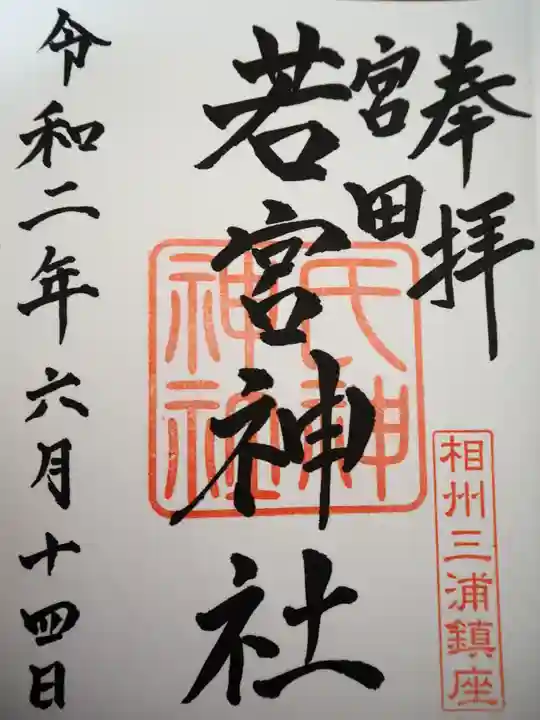 奉拝
相州三浦鎮座
宮田
若宮神社
氏神
神社
令和二年六月十四日